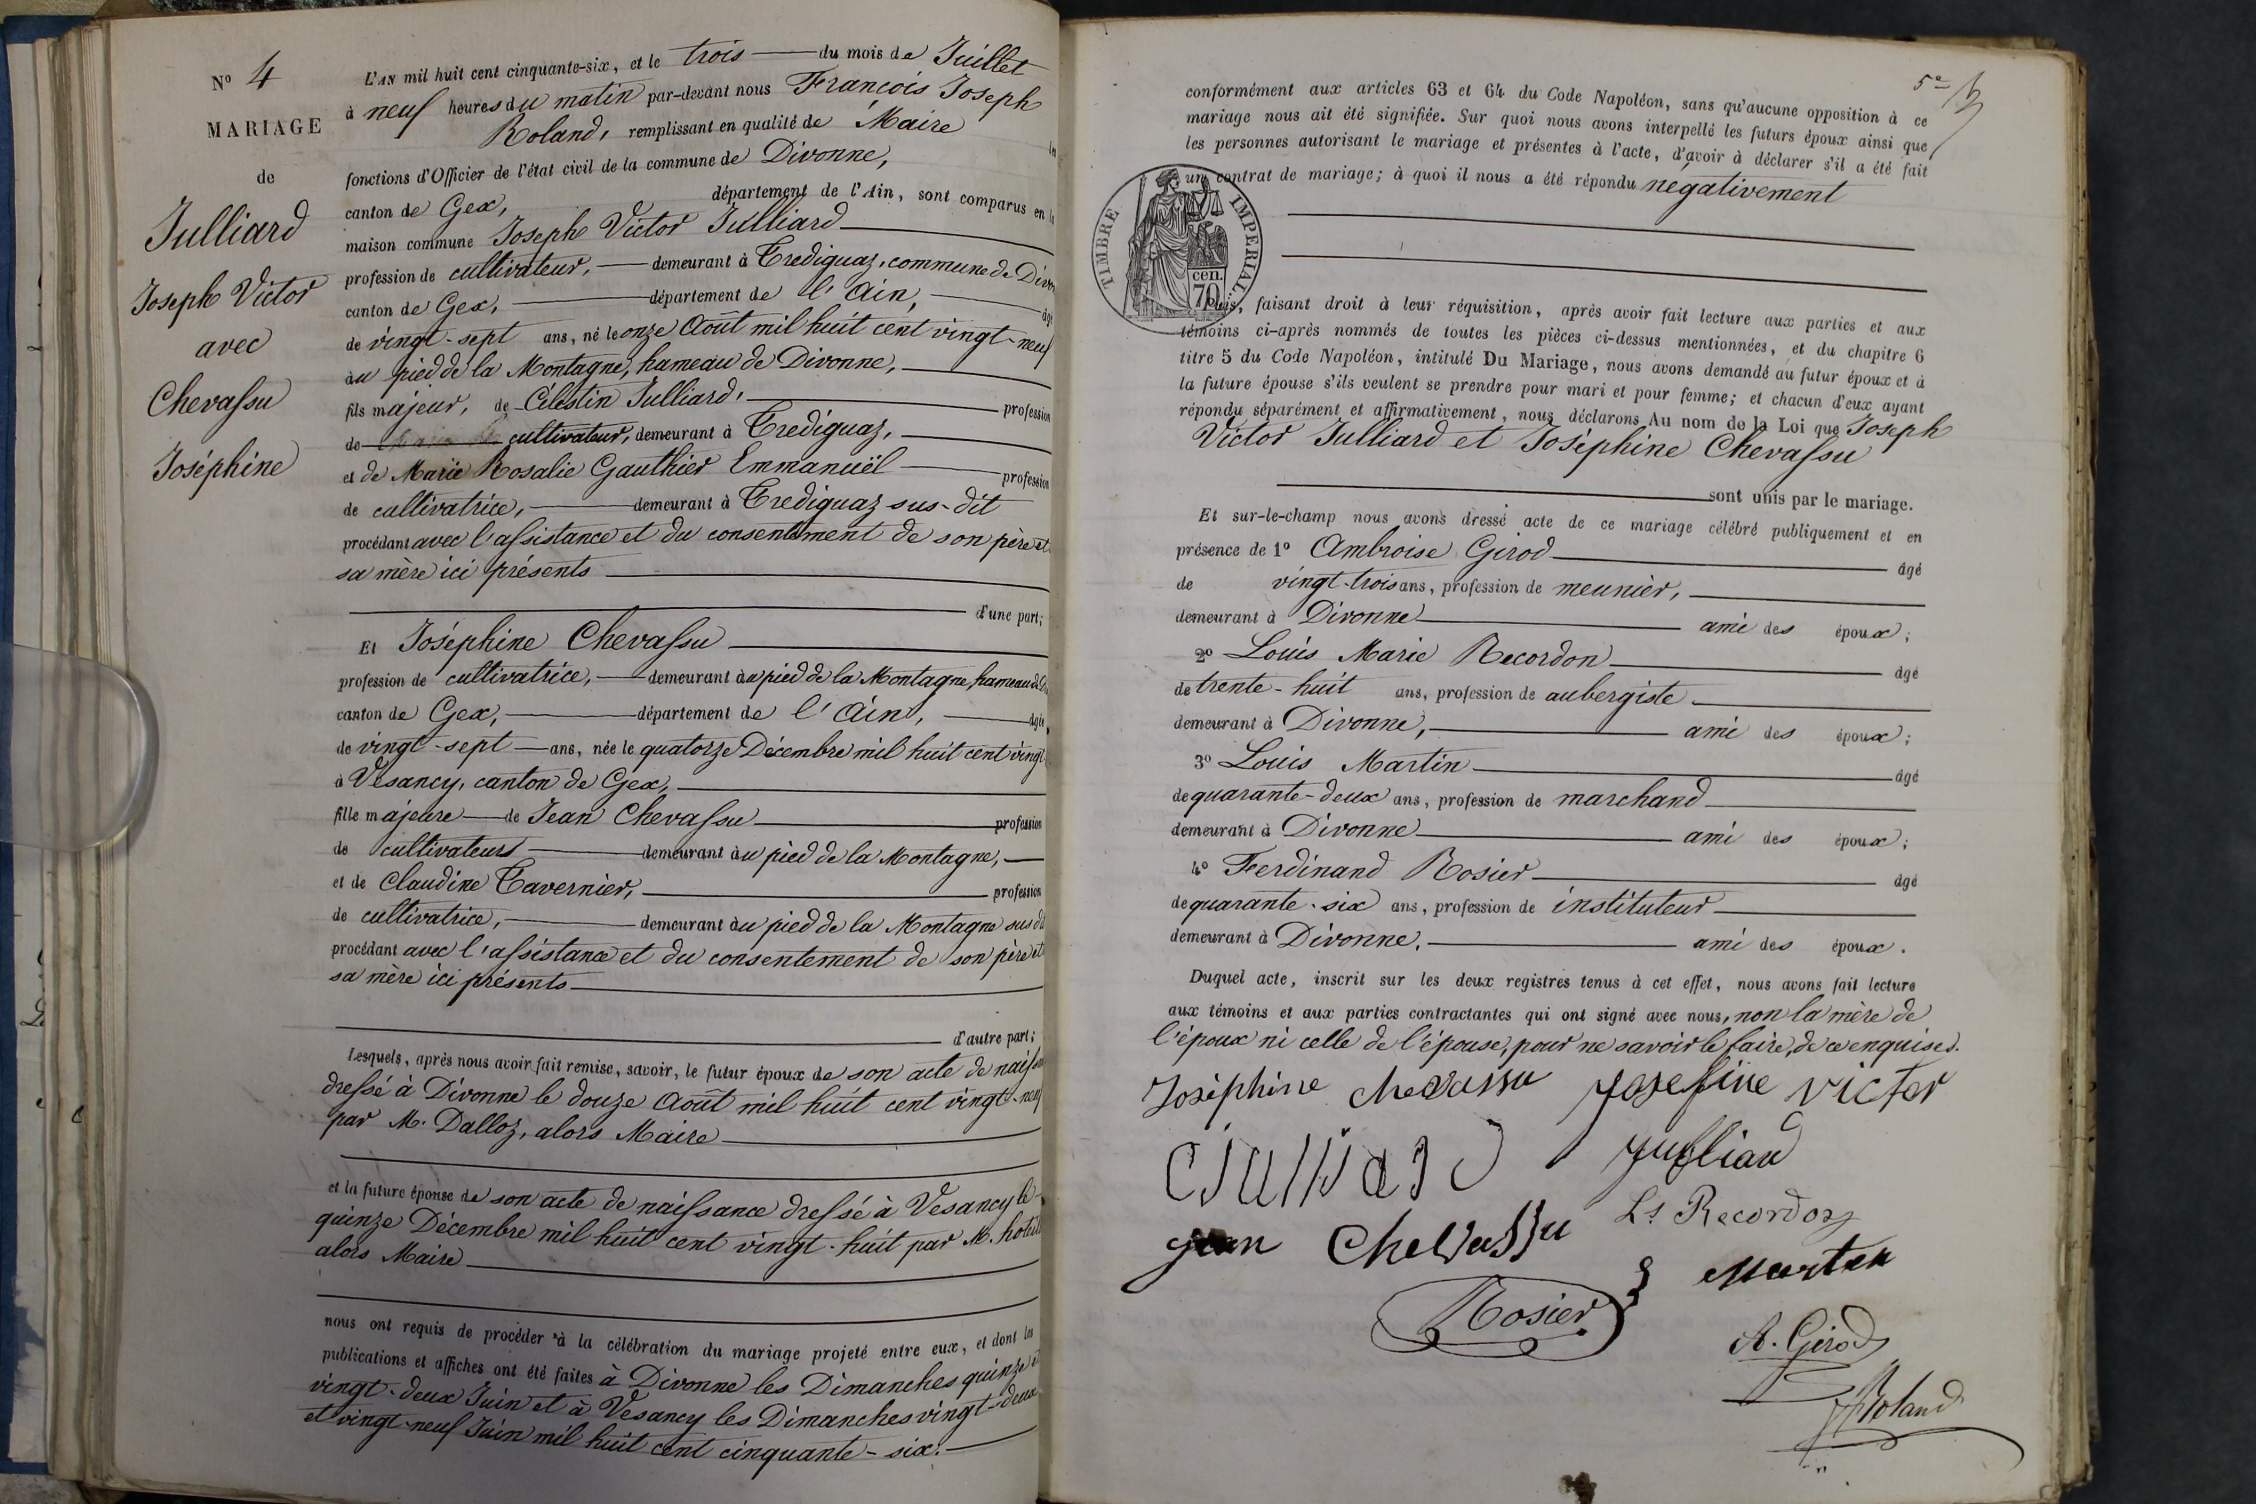 N° 4
MARIAGE
de
Julliard
Joseph Victor
avec
Chevassu
Joséphine
L'AN mil huit cent cinquante-six, et le trois du mois de Juillet
à neuf heures du matin par-devant nous François Joseph
Roland, remplissant en qualité de Maire
fonctions d'Officier de l'état civil de la commune de Divonne,
canton de Gex, département de l'Ain, sont comparus en la
maison commune Joseph Victor Julliard
profession de cultivateur, demeurant à Trediguaz, commune de
canton de Gex, département de l'Ain, âgé
de vingt-sept ans, né le onze Août mil huit cent vingt-neuf
au pied de la Montagne, hameau de Divonne,
fils majeur, de Célestin Julliard, profession
de cultivateur, demeurant à Trediguaz,
et de Marie Rosalie Gauthier Emmanuël profession
de cultivatrice, demeurant à Trediguaz sus-dit
procédant avec l'assistance et du consentement de son père et
sa mère ici présents
d'une part;
Et Joséphine Chevassu
profession de cultivatrice, demeurant au pied de la Montagne, hameau de
canton de Gex, département de l'Ain, âgée
de vingt-sept ans, née le quatorze Décembre mil huit cent vingt
à Vesancy, canton de Gex,
fille majeure de Jean Chevassu profession
de cultivateurs demeurant au pied de la Montagne,
et de Claudine Tavernier, profession
de cultivatrice, demeurant au pied de la Montagne sus dit
procédant avec l'assistance et du consentement de son père et
sa mère ici présents
d'autre part;
Lesquels, après nous avoir fait remise, savoir, le futur époux de son acte de
dressé à Divonne le douze Août mil huit cent vingt-neuf
par M. Dalloz, alors Maire
et la future épouse de son acte de naissance dressé à Vesancy le
quinze Décembre mil huit cent vingt-huit par M.
alors Maire
nous ont requis de procéder à la célébration du mariage projeté entre eux, et dont les
publications et affiches ont été faites à Divonne les Dimanches quinze et
vingt-deux Juin et à Vesancy les Dimanches vingt-deux
et vingt-neuf Juin mil huit cent cinquante-six.
5e
conformément aux articles 63 et 64 du Code Napoléon, sans qu'aucune opposition à ce
mariage nous ait été signifiée. Sur quoi nous avons interpellé les futurs époux ainsi que
les personnes autorisant le mariage et présentes à l'acte, d'avoir à déclarer s'il a été fait
un contrat de mariage; à quoi il nous a été répondu négativement
TIMBRE IMPERIAL
cen.
70
Puis, faisant droit à leur réquisition, après avoir fait lecture aux parties et aux
témoins ci-après nommés de toutes les pièces ci-dessus mentionnées, et du chapitre 6
titre 5 du Code Napoléon, intitulé Du Mariage, nous avons demandé au futur époux et à
la future épouse s'ils veulent se prendre pour mari et pour femme; et chacun d'eux ayant
répondu séparément et affirmativement, nous déclarons Au nom de la Loi que Joseph
Victor Julliard et Joséphine Chevassu
sont unis par le mariage.
Et sur-le-champ nous avons dressé acte de ce mariage célébré publiquement et en
présence de 1° Ambroise Girod âgé
de vingt-trois ans, profession de meunier,
demeurant à Divonne ami des époux;
2° Louis Marie Recordon âgé
de trente-huit ans, profession de aubergiste
demeurant à Divonne, ami des époux;
3° Louis Martin âgé
de quarante-deux ans, profession de marchand
demeurant à Divonne ami des époux;
4° Ferdinand Rosier âgé
de quarante-six ans, profession de instituteur
demeurant à Divonne, ami des époux.
Duquel acte, inscrit sur les deux registres tenus à cet effet, nous avons fait lecture
aux témoins et aux parties contractantes qui ont signé avec nous, non la mère de
l'époux ni celle de l'épouse, pour ne savoir le faire, de ce enquises.
Joséphine chevassu Josefine victor
Julliard
cjulliard
Ls Recordon
jean Chevassu
Martin
Rosier
A. Girod
Roland